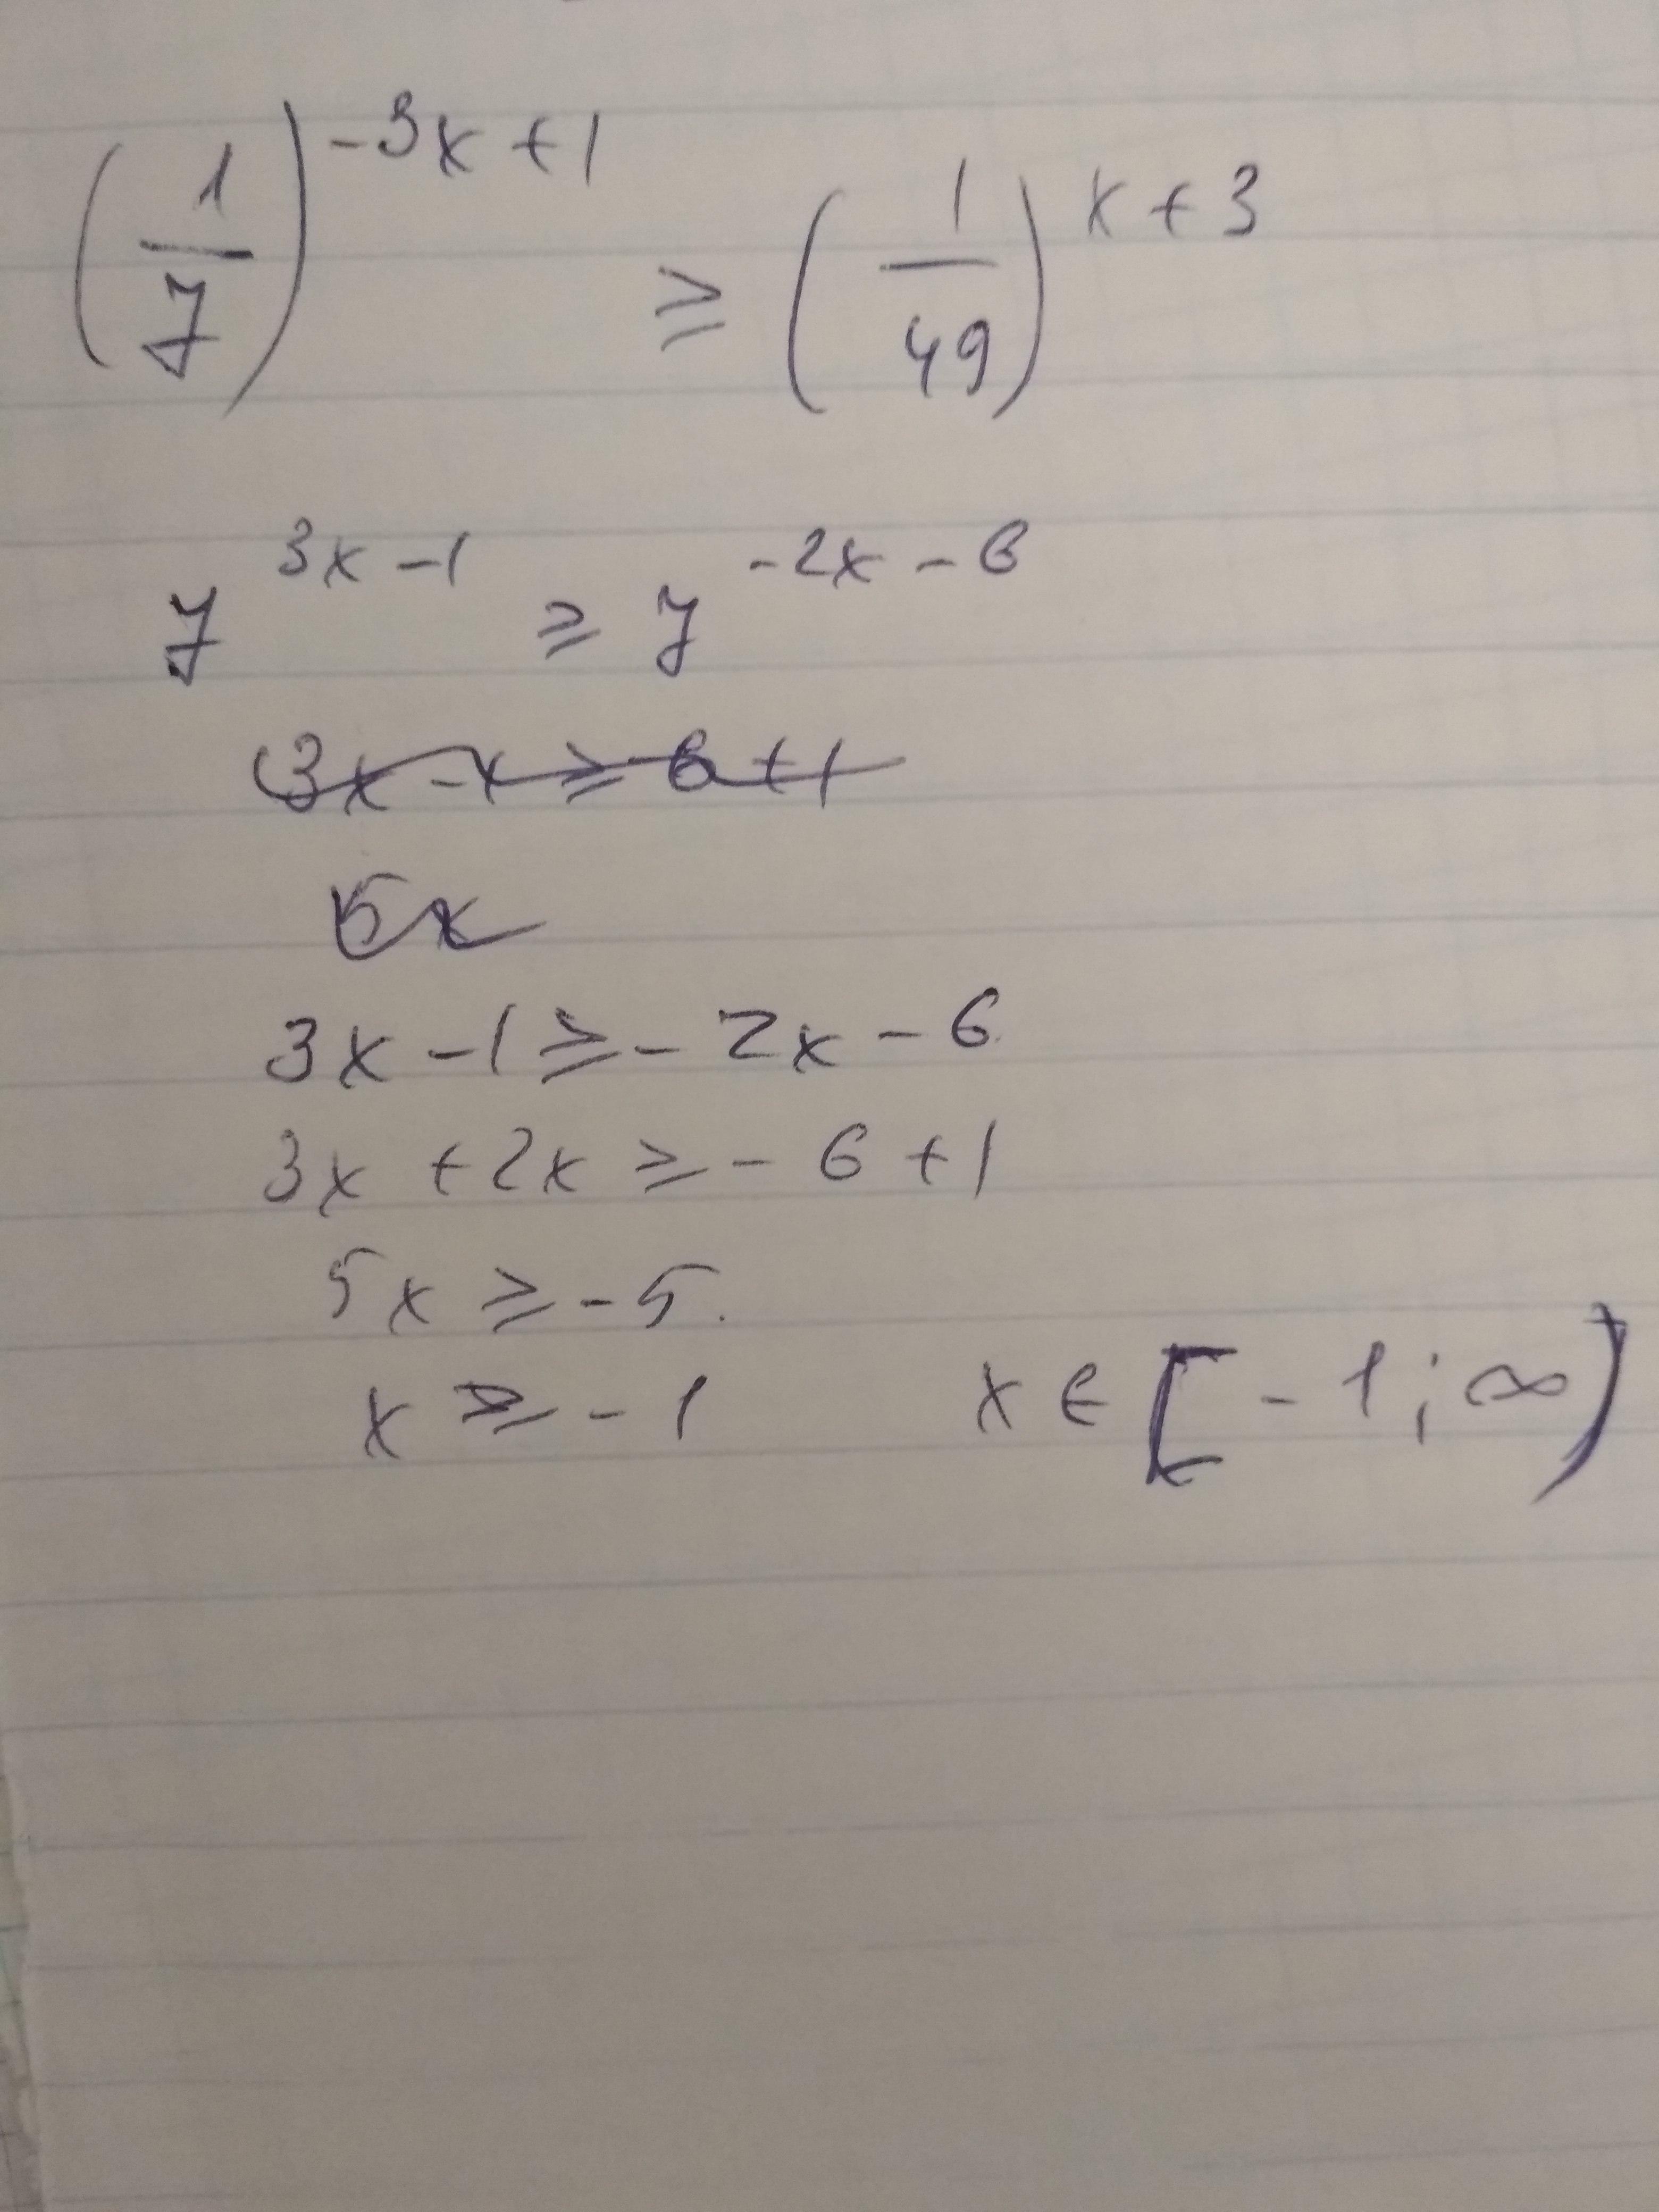 (1/7)^(-3x+1) ≥ (1/49)^(x+3)
7^(3x-1) ≥ 7^(-2x-6)
3x-x ≥ 6+1
5x
3x-1 ≥ -2x-6
3x+2x ≥ -6+1
5x ≥ -5.
x ≥ -1 x ∈ [-1; ∞)